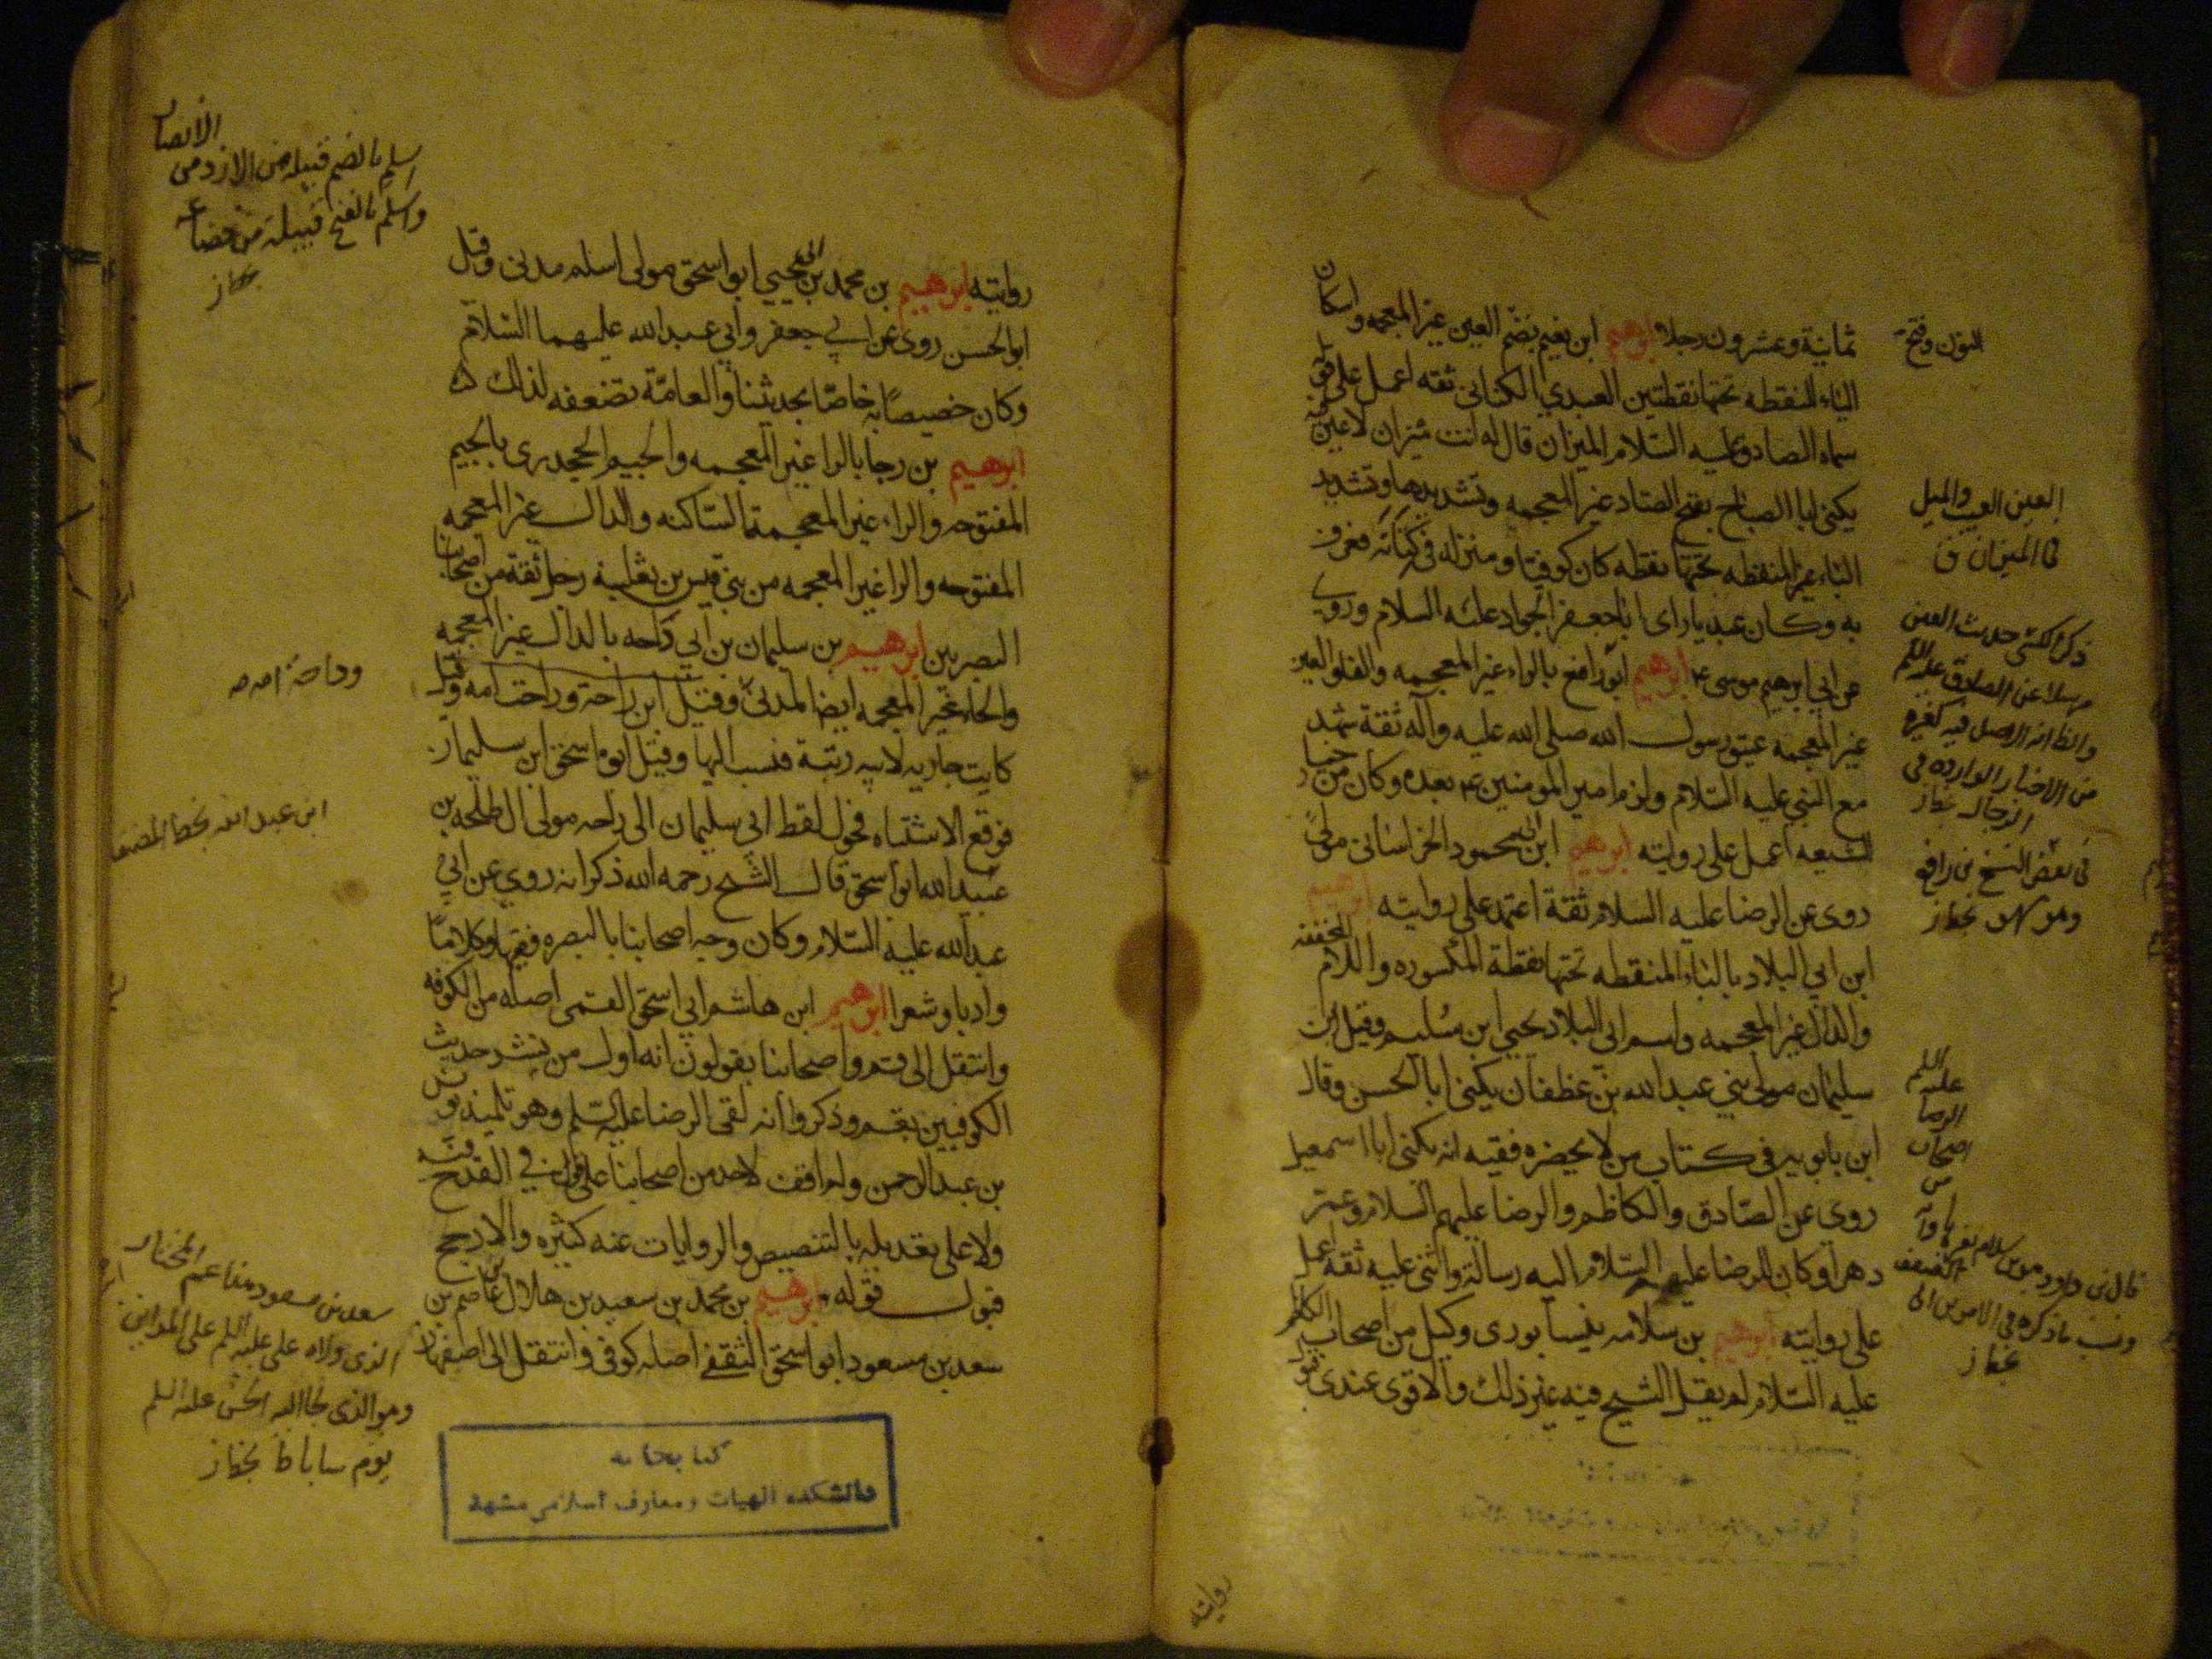 ثمانية وعشرون رجلا ابرهيم ابن نعيم بضم العين غير المعجمه واسكان
الياء المنقطه تحتها نقطتين العبدي الكناني ثقه اعمل على قوله
سماه الصادق عليه السلام الميزان قال له انت ميزان لا عين فيه
يكنى ابا الصباح بفتح الصاد غير المعجمه وتشديدها وتشديد
الباء المنقطه تحتها نقطه كان كوفيا ومنزله في كنانه فعرف
به وكان عبديا راى ابا جعفر الجواد عليه السلام وروى
عن ابي ابرهيم موسى ع ابرهيم ابو رافع بالراء غير المعجمه والفاء والعين
غير المعجمه عتيق رسول الله صلى الله عليه وآله ثقة شهد
مع النبي عليه السلام ولزم امير المومنين ع بعده وكان من خيار
الشيعه اعمل على روايته ابرهيم ابن ابي محمود الخراساني مولى
روى عن الرضا عليه السلام ثقة اعتمد على روايته ابرهيم
ابن ابي البلاد بالباء المنقطه تحتها نقطة المكسوره واللام المخففه
والدال غير المعجمه واسم ابي البلاد يحيى ابن سليم وقيل ابن
سليمان مولى بني عبد الله بن غطفان يكنى ابا الحسن وقال
ابن بابويه في كتاب من لا يحضره فقيه انه يكنى ابا اسمعيل
روى عن الصادق والكاظم والرضا عليهم السلام وعمر
دهرا وكان للرضا عليه السلام اليه رسالة واثنى عليه ثقه اعمل
على روايته ابرهيم بن سلامه نيسابوري وكيل من اصحاب الكاظم
عليه السلام لم يقل الشيخ فيه غير ذلك والاقوى عندى قبول
روايته
النون وفتح
العين العيب والميل
في الميزان ق
ذكر الكشي حديث العين
مرسلا عن الصادق عليه السلم
من الاخبار الواردة في
الرجال بخط ز
في بعض النسخ بن رافع
وهو سهو بخط ز
من
اصحاب
الرضا
عليه
السلم
بخط ز
روايته ابرهيم بن محمد بن ابي يحيى ابو اسحق مولى اسلم مدنى وقيل
ابو الحسن روى عن ابي جعفر وابي عبد الله عليهما السلام
وكان خصيصا به خاصا بحديثنا والعامة تضعفه لذلك
ابرهيم بن رجا بالرا غير المعجمه والجيم الجحدرى بالجيم
المفتوحه والراء غير المعجمة الساكنه والدال غير المعجمه
المفتوحه والرا غير المعجمه من بني قيس بن ثعلبة رجل ثقة من اصحابنا
البصريين ابرهيم بن سليمان بن ابي داحه بالدال غير المعجمه
والحاء غير المعجمه ايضا المدني وقيل ابن راحة وراحة امه وقيل
كانت جاريه لابيه ربته فنسب اليها وقيل ابو اسحق ابن سليمان
فوقع الاشتباه فحول لفظ ابي سليمان الى داحه مولى ال طلحه بن
عبيد الله ابو اسحق قال الشيخ رحمه الله ذكر انه روى عن ابي
عبد الله عليه السلام وكان وجه اصحابنا بالبصره فقها وكلاما
وادبا وشعرا ابرهيم ابن هاشم ابي اسحق القمى اصله من الكوفه
وانتقل الى قم واصحابنا يقولون انه اول من نشر حديث
الكوفيين بقم وذكروا انه لقى الرضا عليه السلم وهو تلميذ يونس
بن عبد الرحمن ولم اقف لاحد من اصحابنا على قول في القدح فيه
ولا على تعديله بالتنصيص والروايات عنه كثيره والارجح
قبول قوله ابرهيم بن محمد بن سعيد بن هلال بن عاصم بن
سعد بن مسعود ابو اسحق الثقفي اصله كوفي وانتقل الى اصفهان
الانصار
اسلم بالضم قبيلة من الازد من
واسلم بالفتح قبيلة من قضاعه
بخط ز
وداحة امه
ابن عبد الله بخط المصنف
سعد بن مسعود هذا عم المختار
الذى ولاه على عليه السلم على المداين
وهو الذى لجا اليه الحسن عليه السلم
يوم ساباط بخط ز
كتابخانه
دانشكده الهيات ومعارف اسلامى مشهد